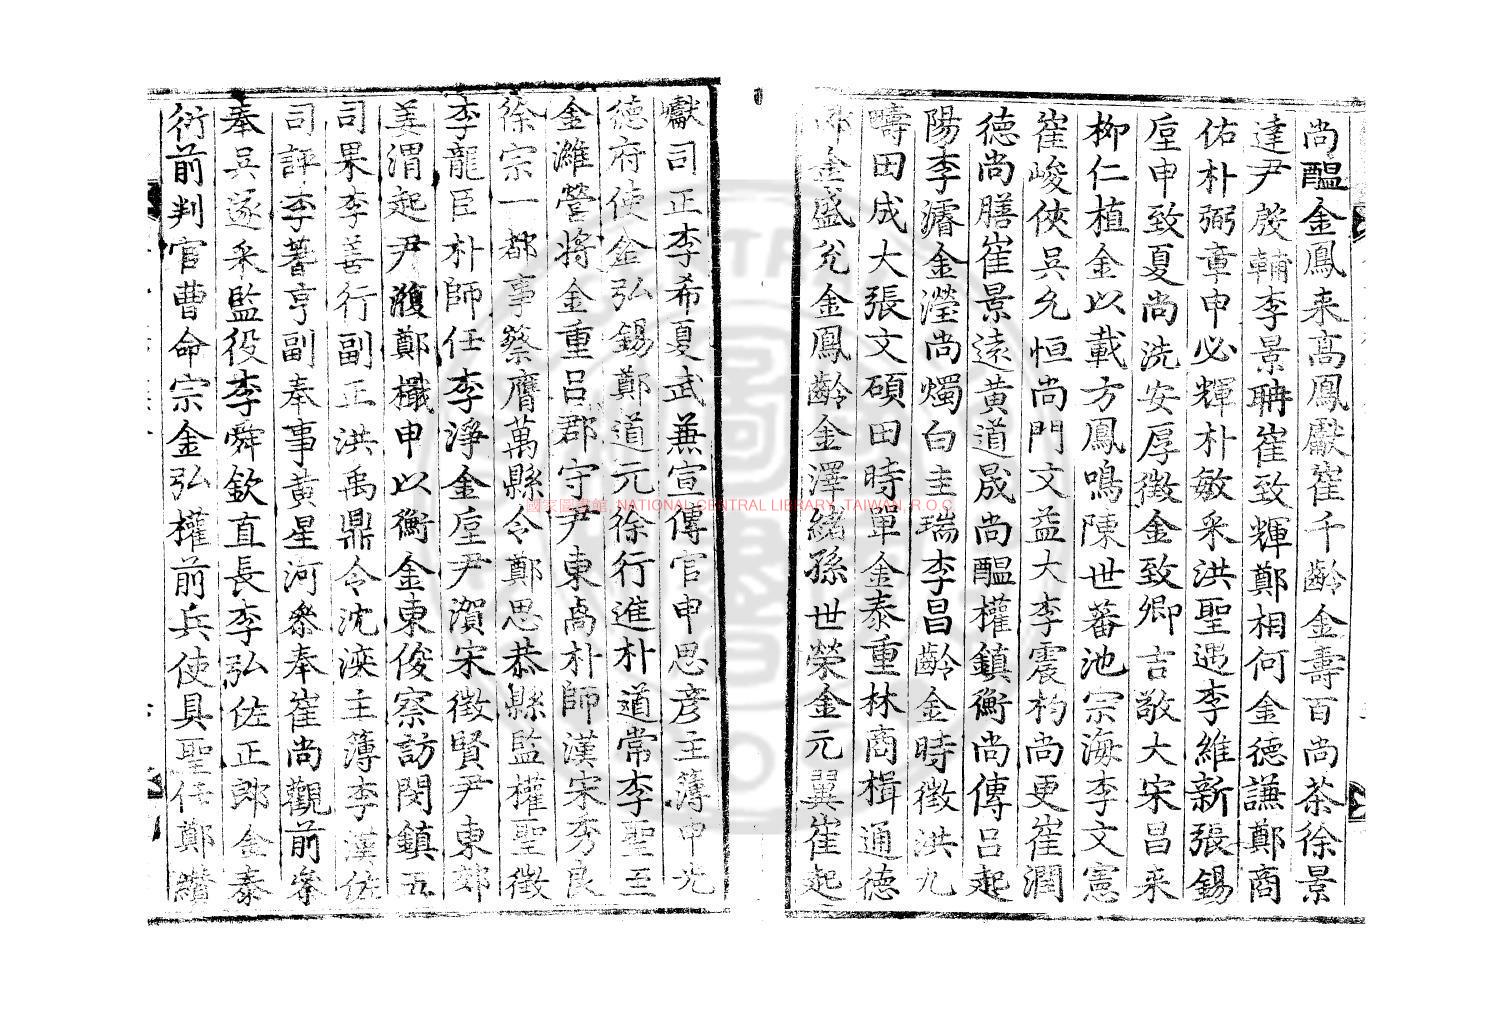 尚醖金鳳来高鳳獻崔千齡金壽百尚茶徐景
達尹殷輔李景聃崔致輝鄭相何金德謙鄭商
佑朴弼章申必輝朴敏采洪聖遇李維新張錫
垕申致夏尚洗安厚徵金致卿吉敬大宋昌来
柳仁植金以載方鳳鳴陳世蕃池宗海李文憲
崔峻俠吳允恒尚門文益大李震杓尚更崔潤
德尚膳崔景遠黄道晟尚醖權鎮衡尚傳呂起
陽李濬金瀅尚燭白圭瑞李昌齡金時徵洪九
疇田成大張文碩田時單金泰重林商楫通德
郎金盛兊金鳳齡金澤緒孫世榮金元翼崔起
巘司正李希夏武兼宣傳官申思彦主簿申光
德府使金弘錫鄭道元徐行進朴道常李聖至
金濰營將金重呂郡守尹東卨朴師漢宋秀良
徐宗一都事蔡膺萬縣令鄭思恭縣監權聖徵
李龍臣朴師任李淨金垕尹濱宋徵賢尹東郊
姜渭起尹澓鄭櫼申以衡金東俊察訪閔鎮五
司果李善行副正洪禹鼎令沈浹主簿李漢佐
司評李蓍亨副奉事黄星河叅奉崔尚觀前叅
奉吳遂采監役李舜欽直長李弘佐正郎金泰
衍前判官曹命宗金弘權前兵使具聖任鄭纘
國家圖書館, NATIONAL CENTRAL LIBRARY, TAIWAN, R.O.C.